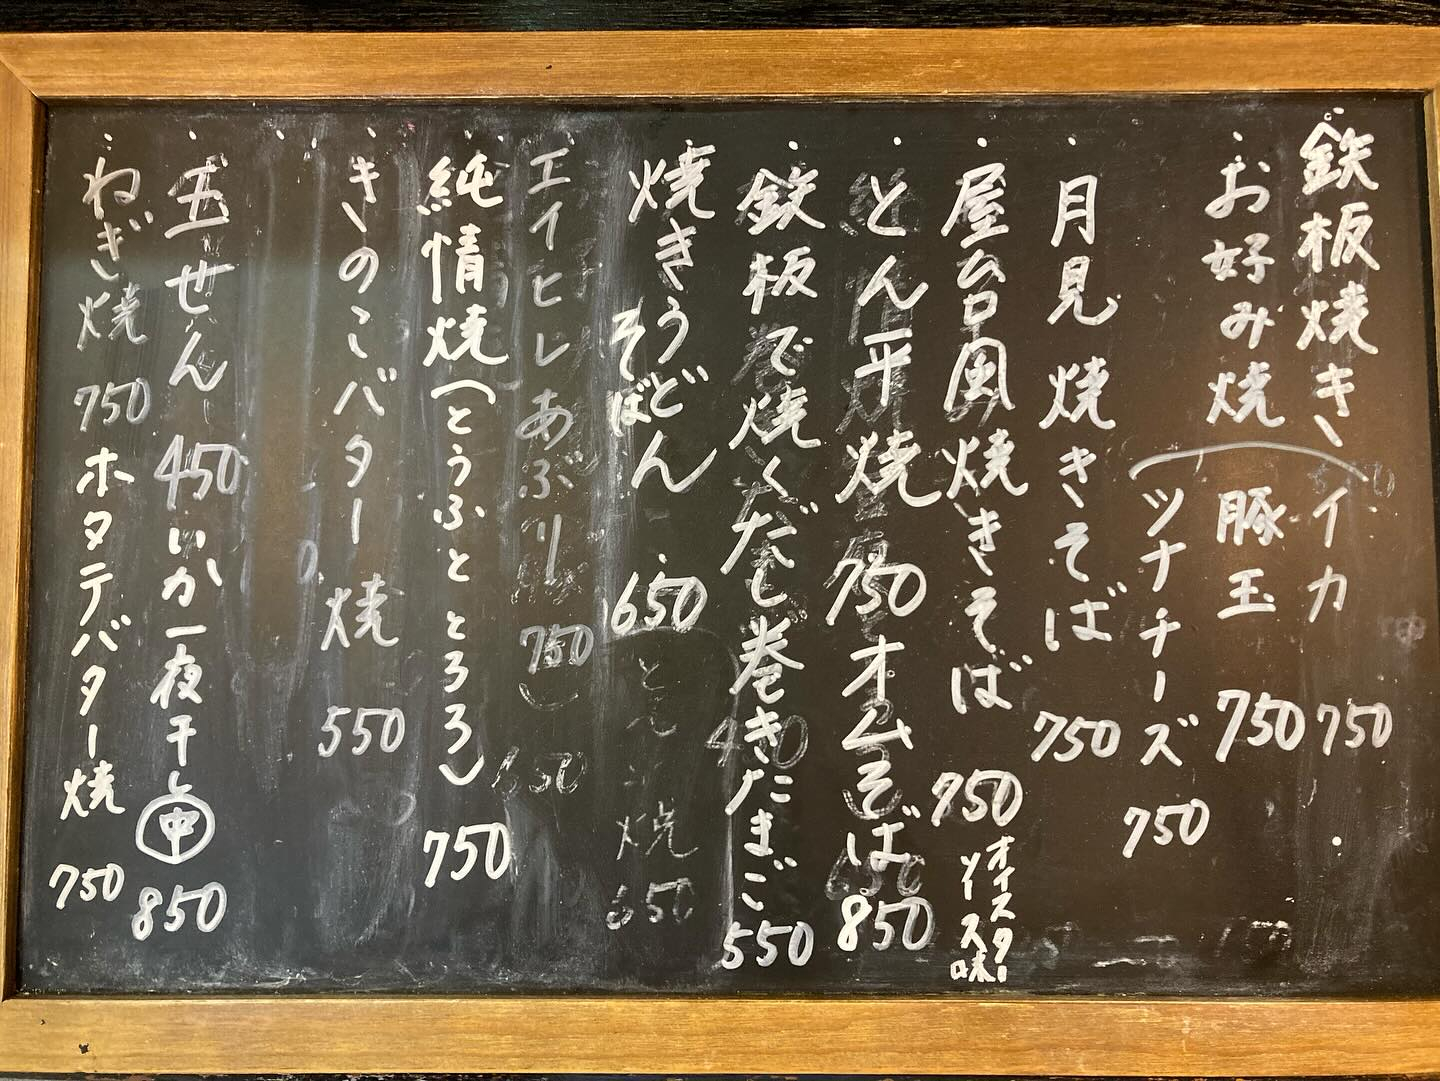 鉄板焼き
イカ 750
お好み焼 豚玉 750
ツナチーズ 750
月見焼きそば 750
屋台風焼きそば 750
オイスターソース味
とん平焼 750 オムそば 850
鉄板で焼くだし巻きたまご 550
焼きうどん 650
そば
エイヒレあぶり
純情焼(とうふととろろ) 750
きのこバター焼 550
玉せん 450 いか一夜干し㊥ 850
ねぎ焼 750 ホタテバター焼 750